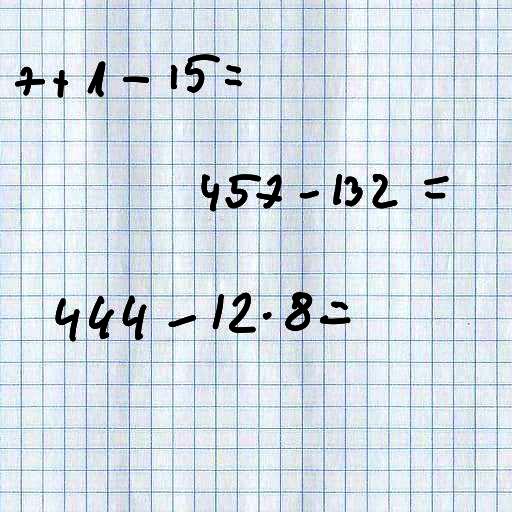 7+1-15=
457-132=
444-12·8=